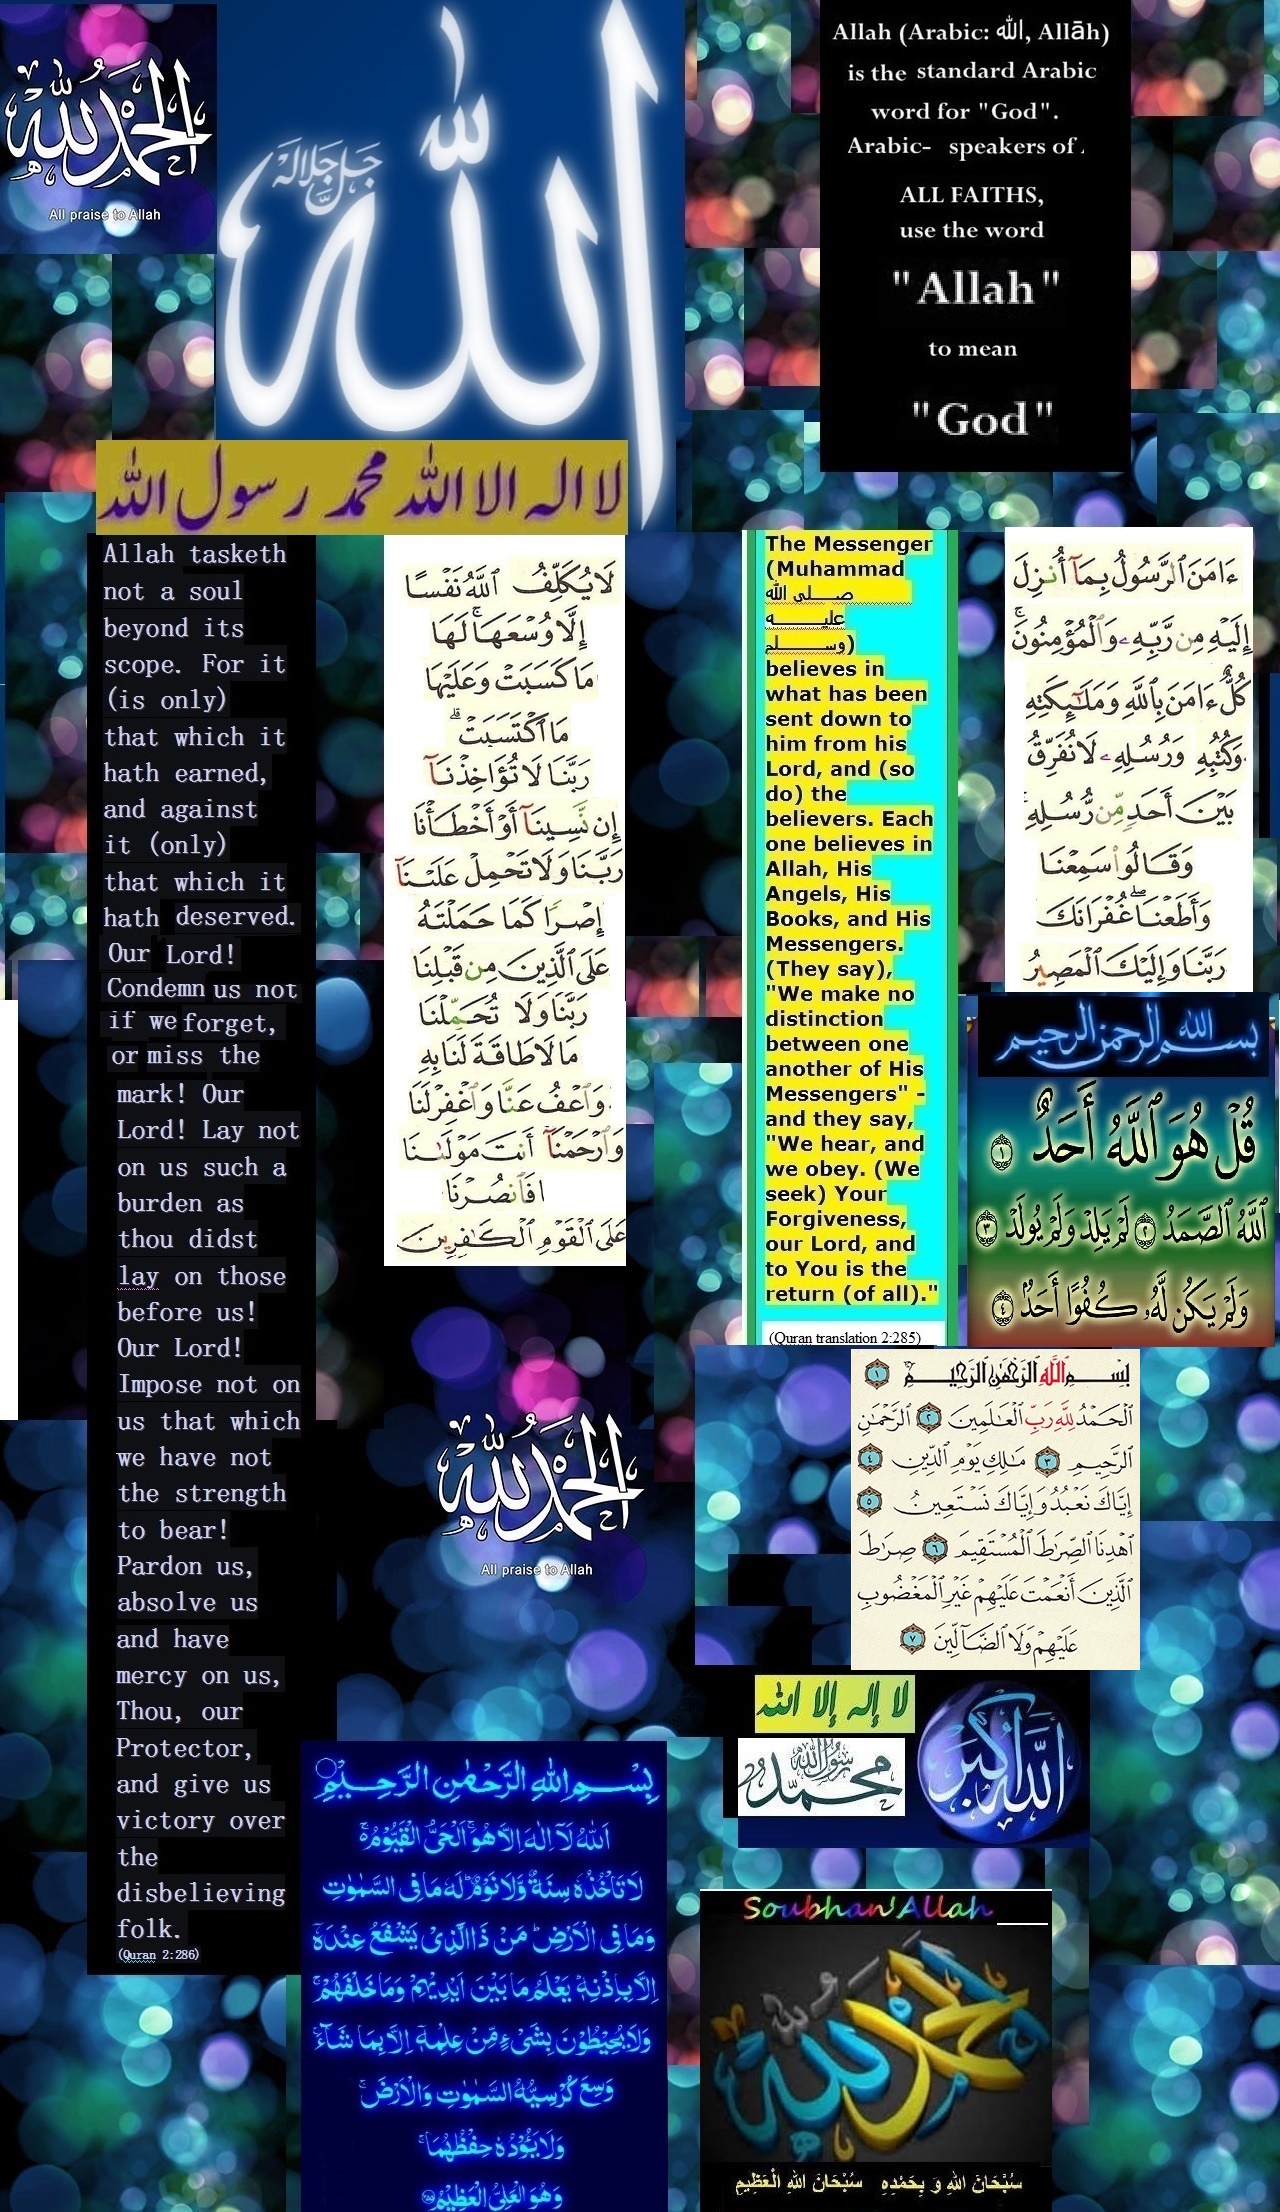 الحمد لله
All praise to Allah
الله
جل جلاله
Allah (Arabic: الله, Allāh)
is the standard Arabic
word for "God".
Arabic- speakers of
ALL FAITHS,
use the word
"Allah"
to mean
"God"
لا اله الا الله محمد رسول الله
Allah tasketh
not a soul
beyond its
scope. For it
(is only)
that which it
hath earned,
and against
it (only)
that which it
hath deserved.
Our Lord!
Condemn us not
if we forget,
or miss the
mark! Our
Lord! Lay not
on us such a
burden as
thou didst
lay on those
before us!
Our Lord!
Impose not on
us that which
we have not
the strength
to bear!
Pardon us,
absolve us
and have
mercy on us,
Thou, our
Protector,
and give us
victory over
the
disbelieving
folk.
(Quran 2:286)
لَا يُكَلِّفُ ٱللَّهُ نَفْسًا
إِلَّا وُسْعَهَا ۚ لَهَا
مَا كَسَبَتْ وَعَلَيْهَا
مَا ٱكْتَسَبَتْ ۗ
رَبَّنَا لَا تُؤَاخِذْنَآ
إِن نَّسِينَآ أَوْ أَخْطَأْنَا
رَبَّنَا وَلَا تَحْمِلْ عَلَيْنَآ
إِصْرًا كَمَا حَمَلْتَهُ
عَلَى ٱلَّذِينَ مِن قَبْلِنَا
رَبَّنَا وَلَا تُحَمِّلْنَا
مَا لَا طَاقَةَ لَنَا بِهِ
وَٱعْفُ عَنَّا وَٱغْفِرْ لَنَا
وَٱرْحَمْنَآ أَنتَ مَوْلَىٰنَا
فَٱنصُرْنَا
عَلَى ٱلْقَوْمِ ٱلْكَٰفِرِينَ
The Messenger
(Muhammad
صلى الله
عليه
وسلم)
believes in
what has been
sent down to
him from his
Lord, and (so
do) the
believers. Each
one believes in
Allah, His
Angels, His
Books, and His
Messengers.
(They say),
"We make no
distinction
between one
another of His
Messengers" -
and they say,
"We hear, and
we obey. (We
seek) Your
Forgiveness,
our Lord, and
to You is the
return (of all)."
(Quran translation 2:285)
ءَامَنَ ٱلرَّسُولُ بِمَآ أُنزِلَ
إِلَيْهِ مِن رَّبِّهِۦ وَٱلْمُؤْمِنُونَ ۚ
كُلٌّ ءَامَنَ بِٱللَّهِ وَمَلَٰٓئِكَتِهِ
وَكُتُبِهِ وَرُسُلِهِۦ لَا نُفَرِّقُ
بَيْنَ أَحَدٍ مِّن رُّسُلِهِ ۚ
وَقَالُوا سَمِعْنَا
وَأَطَعْنَا ۖ غُفْرَانَكَ
رَبَّنَا وَإِلَيْكَ ٱلْمَصِيرُ
بسم الله الرحمن الرحيم
قُلْ هُوَ ٱللَّهُ أَحَدٌ ١
ٱللَّهُ ٱلصَّمَدُ ٢ لَمْ يَلِدْ وَلَمْ يُولَدْ ٣
وَلَمْ يَكُن لَّهُۥ كُفُوًا أَحَدٌ ٤
بِسْمِ ٱللَّهِ ٱلرَّحْمَٰنِ ٱلرَّحِيمِ ١
ٱلْحَمْدُ لِلَّهِ رَبِّ ٱلْعَٰلَمِينَ ٢ ٱلرَّحْمَٰنِ
ٱلرَّحِيمِ ٣ مَٰلِكِ يَوْمِ ٱلدِّينِ ٤
إِيَّاكَ نَعْبُدُ وَإِيَّاكَ نَسْتَعِينُ ٥
ٱهْدِنَا ٱلصِّرَٰطَ ٱلْمُسْتَقِيمَ ٦ صِرَٰطَ
ٱلَّذِينَ أَنْعَمْتَ عَلَيْهِمْ غَيْرِ ٱلْمَغْضُوبِ
عَلَيْهِمْ وَلَا ٱلضَّآلِّينَ ٧
الحمد لله
All praise to Allah
لا إله إلا الله
محمد رسول الله
الله أكبر
بِسْمِ اللهِ الرَّحْمٰنِ الرَّحِيْمِ
اَللهُ لَآ اِلٰهَ اِلَّا هُوَ ۚ اَلْحَيُّ الْقَيُّوْمُ ۚ
لَا تَاْخُذُهٗ سِنَةٌ وَّلَا نَوْمٌ ؕ لَهٗ مَا فِى السَّمٰوٰتِ
وَمَا فِى الْاَرْضِ ؕ مَنْ ذَا الَّذِىْ يَشْفَعُ عِنْدَهٗٓ
اِلَّا بِاِذْنِهٖ ؕ يَعْلَمُ مَا بَيْنَ اَيْدِيْهِمْ وَمَا خَلْفَهُمْ ۚ
وَلَا يُحِيْطُوْنَ بِشَىْءٍ مِّنْ عِلْمِهٖٓ اِلَّا بِمَا شَآءَ ۚ
وَسِعَ كُرْسِيُّهُ السَّمٰوٰتِ وَالْاَرْضَ ۚ
وَلَا يَـُٔوْدُهٗ حِفْظُهُمَا ۚ
وَهُوَ الْعَلِىُّ الْعَظِيْمُ ٢٥٥
Soubhan'Allah
والحمد لله
سُبْحَانَ اللهِ وَ بِحَمْدِهِ سُبْحَانَ اللهِ الْعَظِيمِ